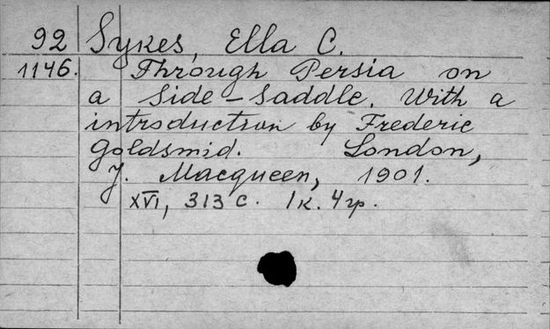 92 Sykes, Ella C.
1146. Through Persia on
a side-saddle. With a
introduction by Frederic
Goldsmid. London,
J. Macqueen, 1901.
XVI, 313 с. 1к. 4 гр.